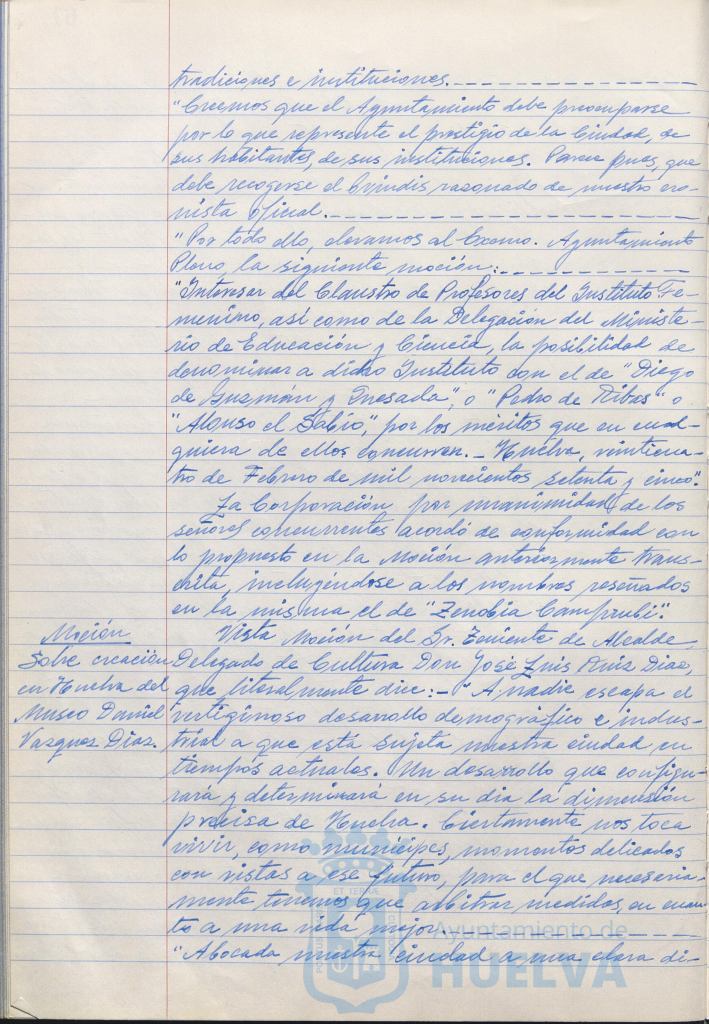 tradiciones e instituciones.
"Creemos que el Ayuntamiento debe preocuparse
por lo que represente el prestigio de la Ciudad, de
sus habitantes, de sus instituciones. Parece pues, que
debe recogerse el brindis razonado de nuestro cro-
nista oficial.
"Por todo ello, elevamos al Excmo. Ayuntamiento
Pleno, la siguiente moción:
"Interesar del Claustro de Profesores del Instituto Fe-
menino, así como de la Delegación del Ministe-
rio de Educación y Ciencia, la posibilidad de
denominar a dicho Instituto con el de "Diego
de Guzmán y Quesada", o "Pedro de Ribas" o
"Alonso el Sabio", por los méritos que en cual-
quiera de ellos concurren.- Huelva, veinticua-
tro de Febrero de mil novecientos setenta y cinco".
La Corporación, por unanimidad de los
señores concurrentes acordó de conformidad con
lo propuesto en la Moción anteriormente trans-
crita, incluyéndose a los nombres reseñados
en la misma el de "Zenobia Camprubí".
Moción
Sobre creación
en Huelva del
Museo Daniel
Vazquez Diaz.
Vista Moción del Sr. Teniente de Alcalde,
Delegado de Cultura Don José Luis Ruiz Diaz,
que literalmente dice:- "A nadie escapa el
vertiginoso desarrollo demográfico e indus-
trial a que está sujeta nuestra ciudad en
tiempos actuales. Un desarrollo que configu-
rará y determinará en su dia la dimensión
precisa de Huelva. Ciertamente nos toca
vivir, como munícipes, momentos delicados
con vistas a ese futuro, para el que necesaria-
mente tenemos que arbitrar medidas, en cuan-
to a una vida mejor
"Abocada nuestra ciudad a una clara di-
Ayuntamiento de
HUELVA